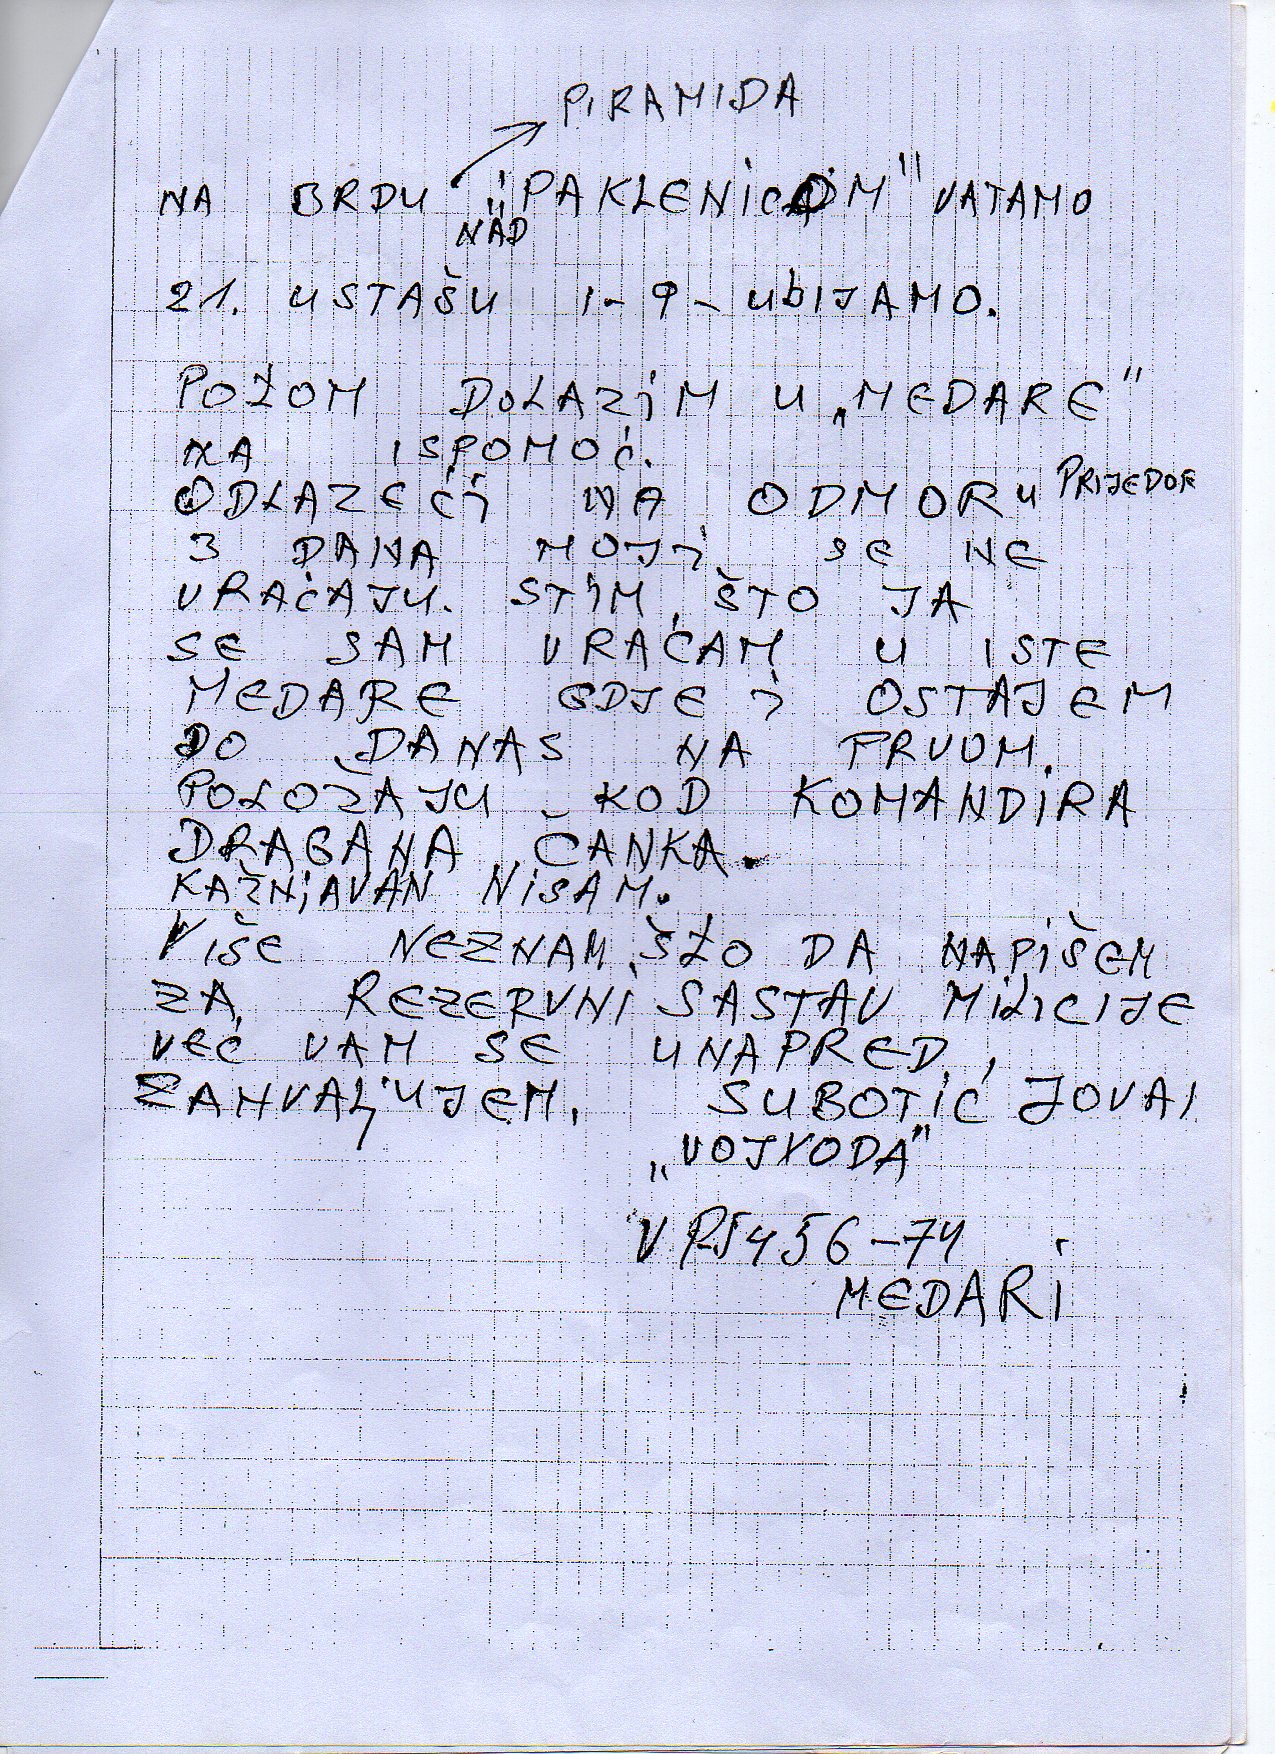 PIRAMIDA
NA BRDU „PAKLENICOM" VATAMO
NAD
21. USTAŠU 1-9- UBIJAMO.
POTOM DOLAZIM U „MEDARE"
NA ISPOMOĆ.
ODLAZEĆI NA ODMOR U PRIJEDOR
3 DANA MOJI SE NE
VRAĆAJU. STIM ŠTO JA
SE SAM VRAĆAM U ISTE
MEDARE GDJE I OSTAJEM
DO DANAS NA PRVOM.
POLOŽAJU KOD KOMANDIRA
DRAGANA ČANKA.
KAŽNJAVAN NISAM.
VIŠE NEZNAM ŠTO DA NAPIŠEM
ZA REZERVNI SASTAV MILICIJE
VEĆ VAM SE UNAPRED,
ZAHVALJUJEM. SUBOTIĆ JOVAN
„VOJVODA"
V 5456-74
MEDARI